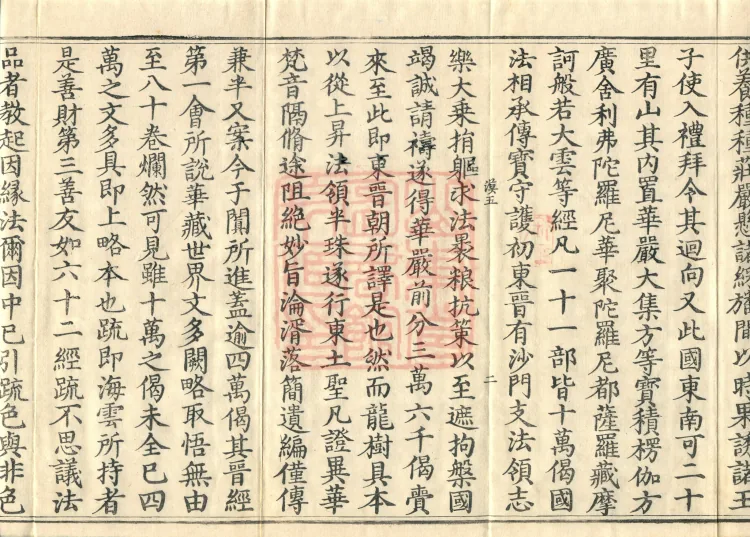 供養種種莊嚴懸諸繒旛間以時果誡諸王
子使入禮拜令其迴向又此國東南可二十
里有山其內置華嚴大集方等寶積楞伽方
廣舍利弗陀羅尼華聚陀羅尼都薩羅藏摩
訶般若大雲等經凡一十一部皆十萬偈國
法相承傳寶守護初東晉有沙門支法領志
漠五 二
樂大乗捐軀求法褁粮抗策以至遮拘槃國
竭誠請禱遂得華嚴前分三萬六千偈賷
來至此即東晉朝所譯是也然而龍樹具本
以從上昇法領半珠遂行東土聖凡證異華
梵音隔脩途阻絶妙旨淪湑落簡遺編僅傳
兼半又案今于闐所進蓋逾四萬偈其晉經
第一會所說華藏世界文多闕略取悟無由
至八十卷爛然可見雖十萬之偈未全已四
萬之文多具即上略本也疏即海雲所持者
是善財第三善友如六十二經疏不思議法
品者教起因緣法爾因中已引疏色與非色